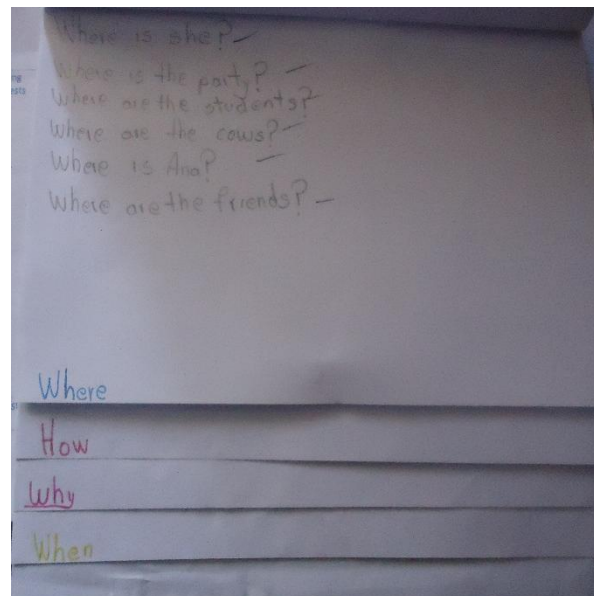 Where is she?-
Where is the party? -
Where are the students?
Where are the cows?-
Where is Ana? -
Where are the friends? -
Where
How
Why
When